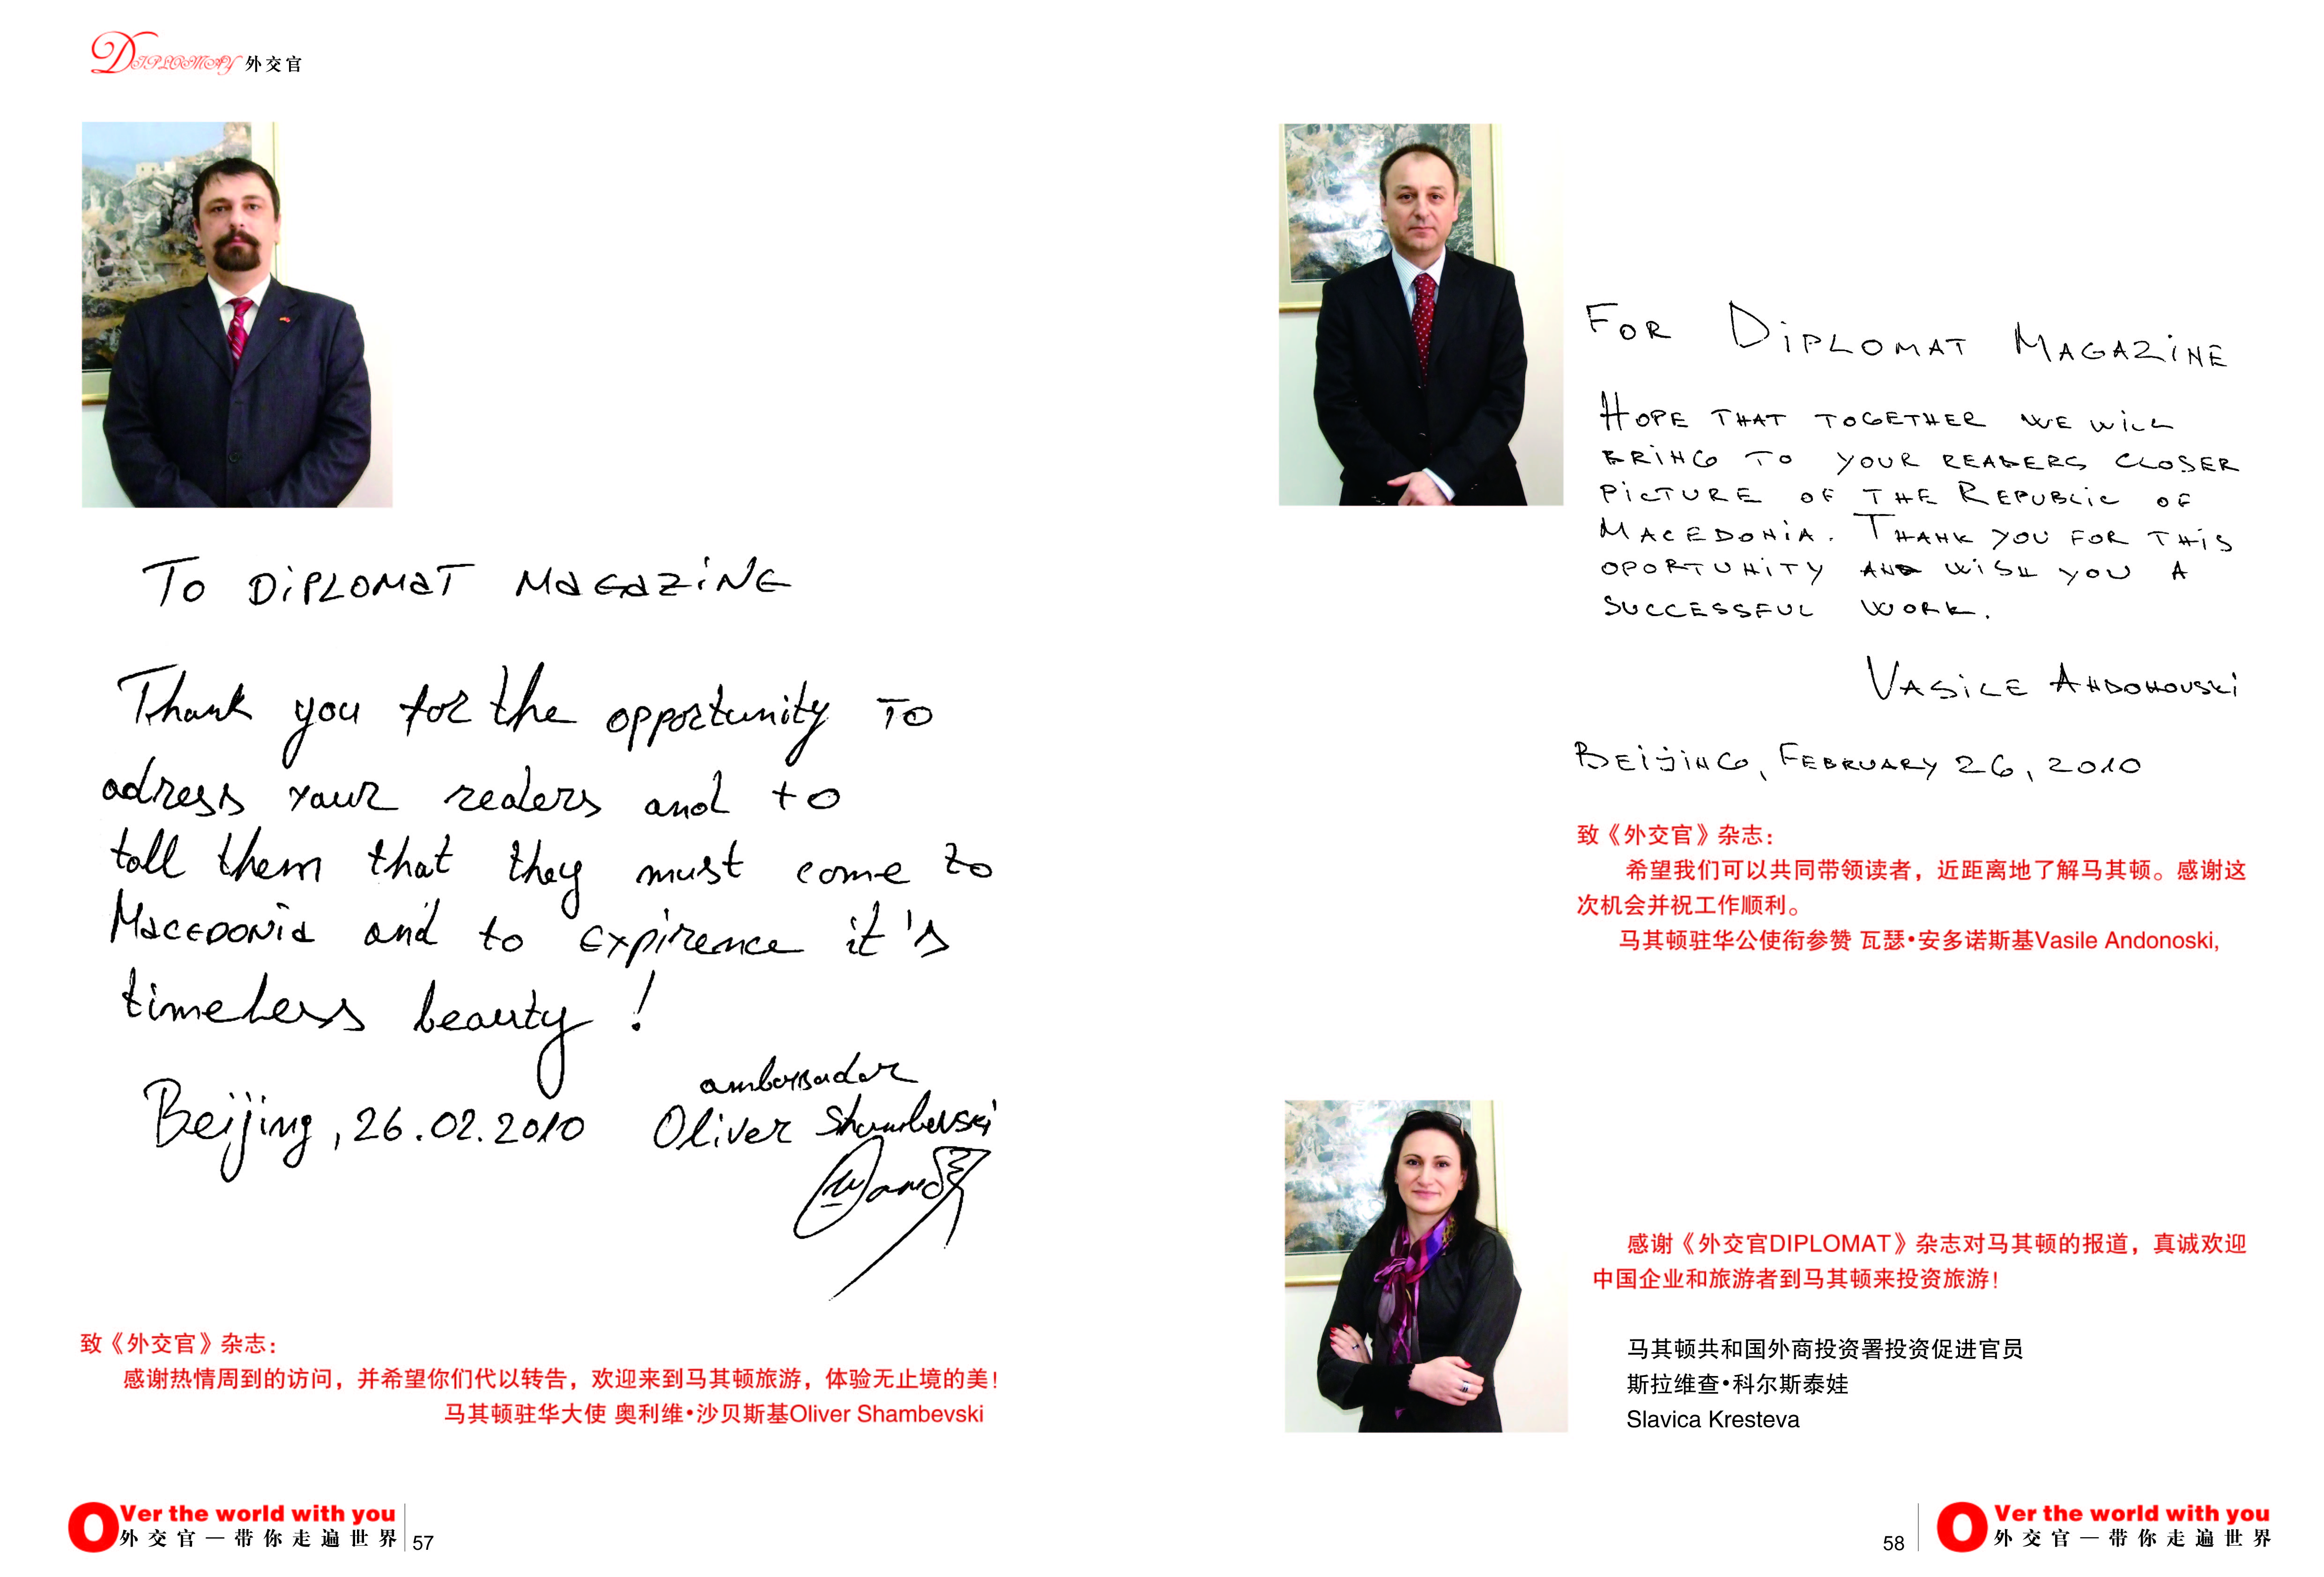 DIPLOMACY 外交官
TO DiPLOMaT MaGaZiNE
Thank you for the opportunity TO
adress your readers and to
tell them that they must come to
MaCEDONia and to expirence it's
timeless beauty !
Beijing, 26.02.2010
ambassador
Oliver Shambevski
致《外交官》杂志：
感谢热情周到的访问，并希望你们代以转告，欢迎来到马其顿旅游，体验无止境的美！
马其顿驻华大使 奥利维•沙贝斯基Oliver Shambevski
OVer the world with you
外交官—带你走遍世界 57
FOR DiPLOMAT MAGAZiNE
HOPE THAT TOGETHER WE WiLL
BRiNG TO YOUR READERS CLOSER
PiCTURE OF THE REPUBLiC OF
MACEDONiA. THANK YOU FOR THiS
OPORTUNiTY AND WiSH YOU A
SUCCESSFUL WORK.
VASiLE ANDONOVSKi
BEijiNG, FEBRUARY 26, 2010
致《外交官》杂志：
希望我们可以共同带领读者，近距离地了解马其顿。感谢这
次机会并祝工作顺利。
马其顿驻华公使衔参赞 瓦瑟•安多诺斯基Vasile Andonoski,
感谢《外交官DIPLOMAT》杂志对马其顿的报道，真诚欢迎
中国企业和旅游者到马其顿来投资旅游！
马其顿共和国外商投资署投资促进官员
斯拉维查•科尔斯泰娃
Slavica Kresteva
58
OVer the world with you
外交官—带你走遍世界